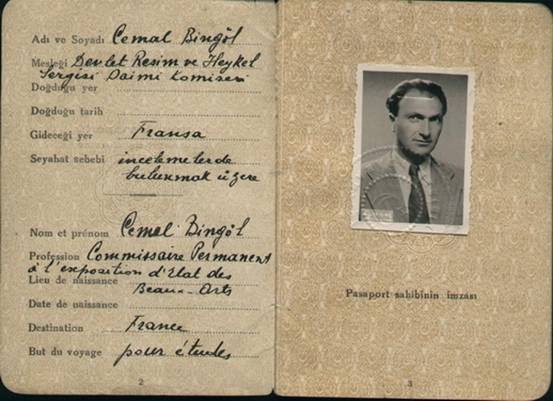 Adı ve Soyadı Cemal Bingöl
Mesleği Devlet Resim ve Heykel
Sergisi Daimi Komiseri
Doğduğu yer
Doğduğu tarih
Gideceği yer Fransa
Seyahat sebebi incelemelerde
bulunmak üzere
Nom et prénom Cemal Bingöl
Profession Commissaire Permanent
à l'exposition d'Etat des
Lieu de naissance Beaux-Arts
Date de naissance
Destination France
But du voyage pour études
2
Pasaport sahibinin imzası
3